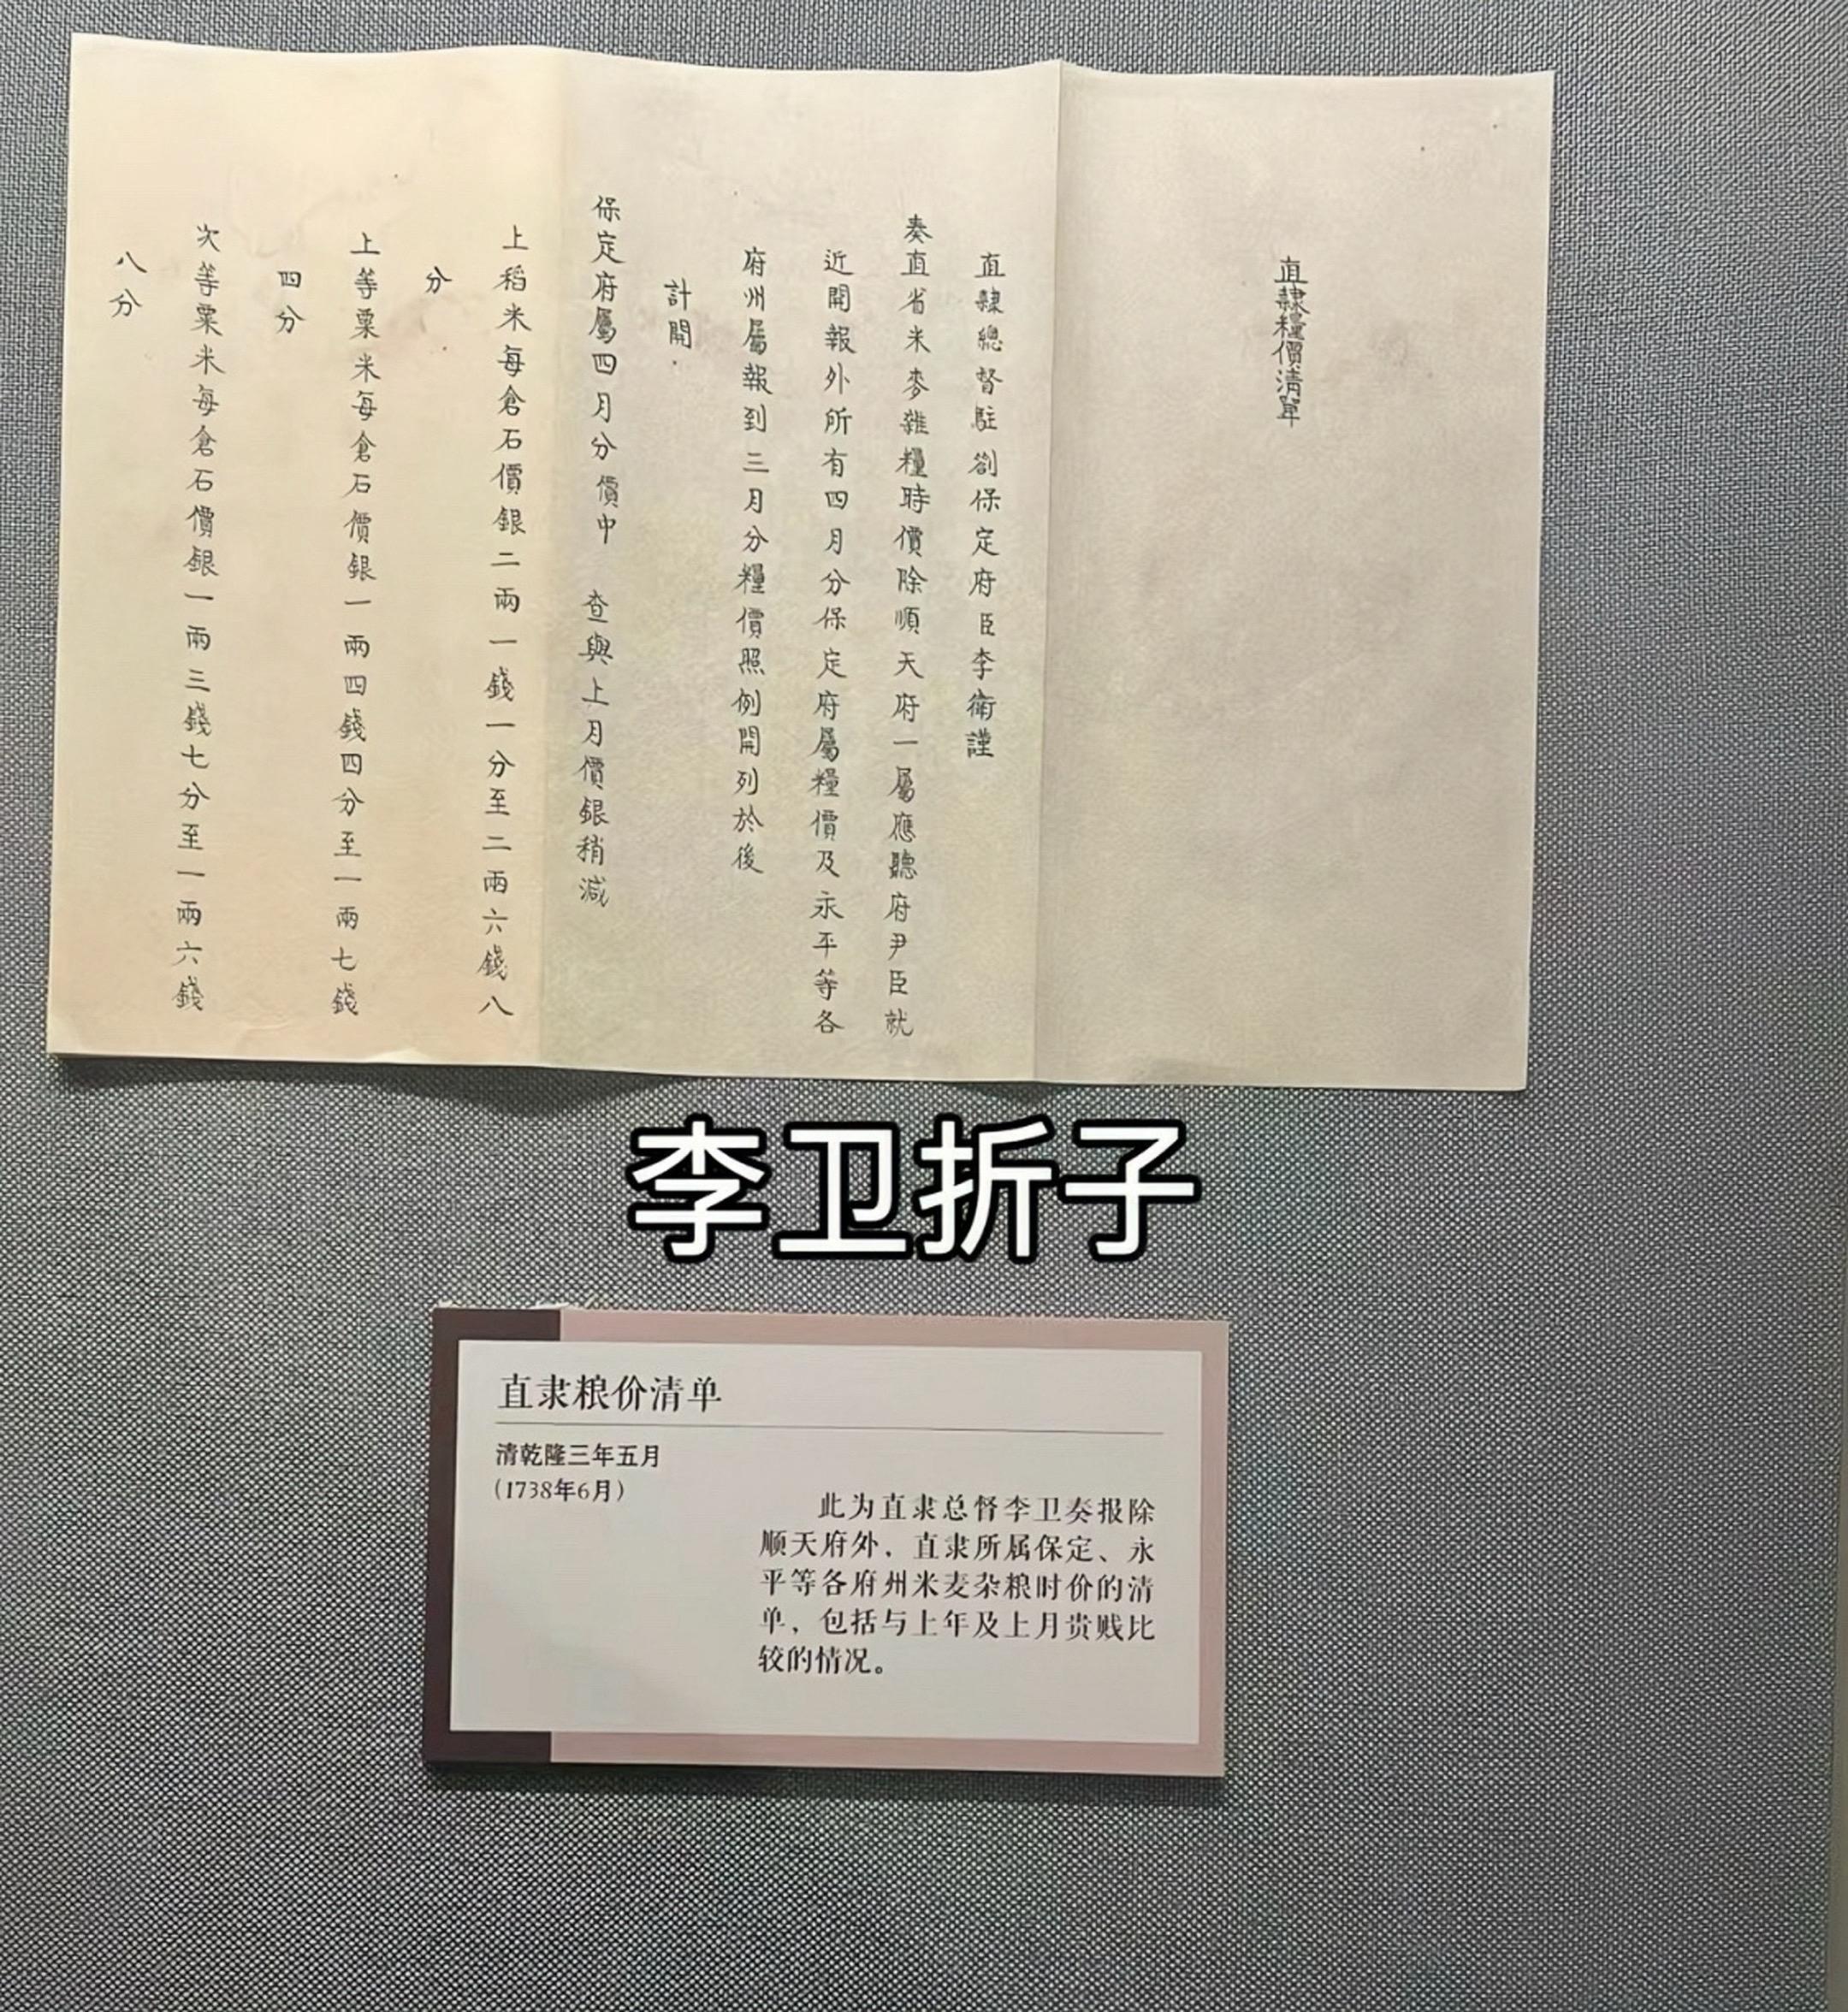 直隸糧價清單
直隸總督駐劄保定府臣李衛謹
奏直省米麥雜糧時價除順天府一屬應聽府尹臣就
近開報外所有四月分保定府屬糧價及永平等各
府州屬報到三月分糧價照例開列於後
計開
保定府屬四月分價中 查與上月價銀稍減
上稻米每倉石價銀二兩一錢一分至二兩六錢八
分
上等粟米每倉石價銀一兩四錢四分至一兩七錢
四分
次等粟米每倉石價銀一兩三錢七分至一兩六錢
八分
李卫折子
直隶粮价清单
清乾隆三年五月
（1738年6月）
此为直隶总督李卫奏报除
顺天府外，直隶所属保定、永
平等各府州米麦杂粮时价的清
单，包括与上年及上月贵贱比
较的情况。